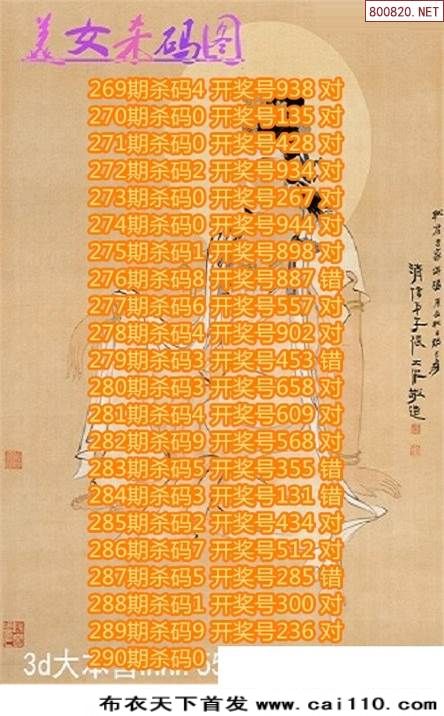 800820.NET
美女杀码图
269期杀码4 开奖号938 对
270期杀码0 开奖号135 对
271期杀码0 开奖号428 对
272期杀码2 开奖号934 对
273期杀码0 开奖号267 对
274期杀码0 开奖号944 对
275期杀码1 开奖号898 对
276期杀码8 开奖号887 错
277期杀码6 开奖号557 对
278期杀码4 开奖号902 对
279期杀码3 开奖号453 错
280期杀码3 开奖号658 对
281期杀码4 开奖号609 对
282期杀码9 开奖号568 对
283期杀码5 开奖号355 错
284期杀码3 开奖号131 错
285期杀码2 开奖号434 对
286期杀码7 开奖号512 对
287期杀码5 开奖号285 错
288期杀码1 开奖号300 对
289期杀码9 开奖号236 对
290期杀码0
3d大本营
布衣天下首发 www.cai110.com